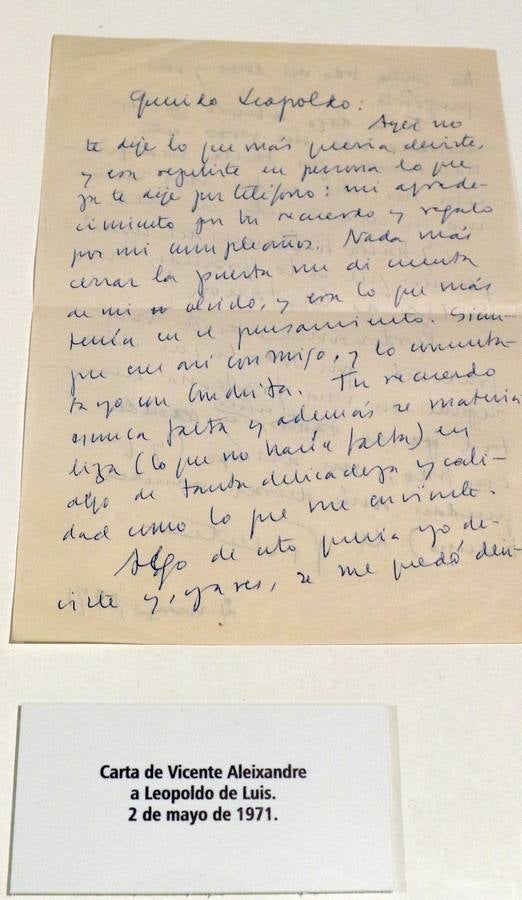 Querido Leopoldo:
Ayer no
te dije lo que más quería decirte,
y era repetirte en persona lo que
ya te dije por teléfono: mi agrade-
cimiento por tu recuerdo y regalo
por mi cumpleaños. Nada más
cerrar la puerta me di cuenta
de mi olvido, y era lo que más
tenía en el pensamiento. Siem-
pre eres así conmigo, y lo comenta-
ba yo con Conchita. Tu recuerdo
nunca falta y además se materia
liza (lo que no hacía falta) en
algo de tanta delicadeza y cali-
dad como lo que me enviaste.
Algo de esto quería yo de-
cirte y, ya ves, se me quedó
Carta de Vicente Aleixandre
a Leopoldo de Luis.
2 de mayo de 1971.